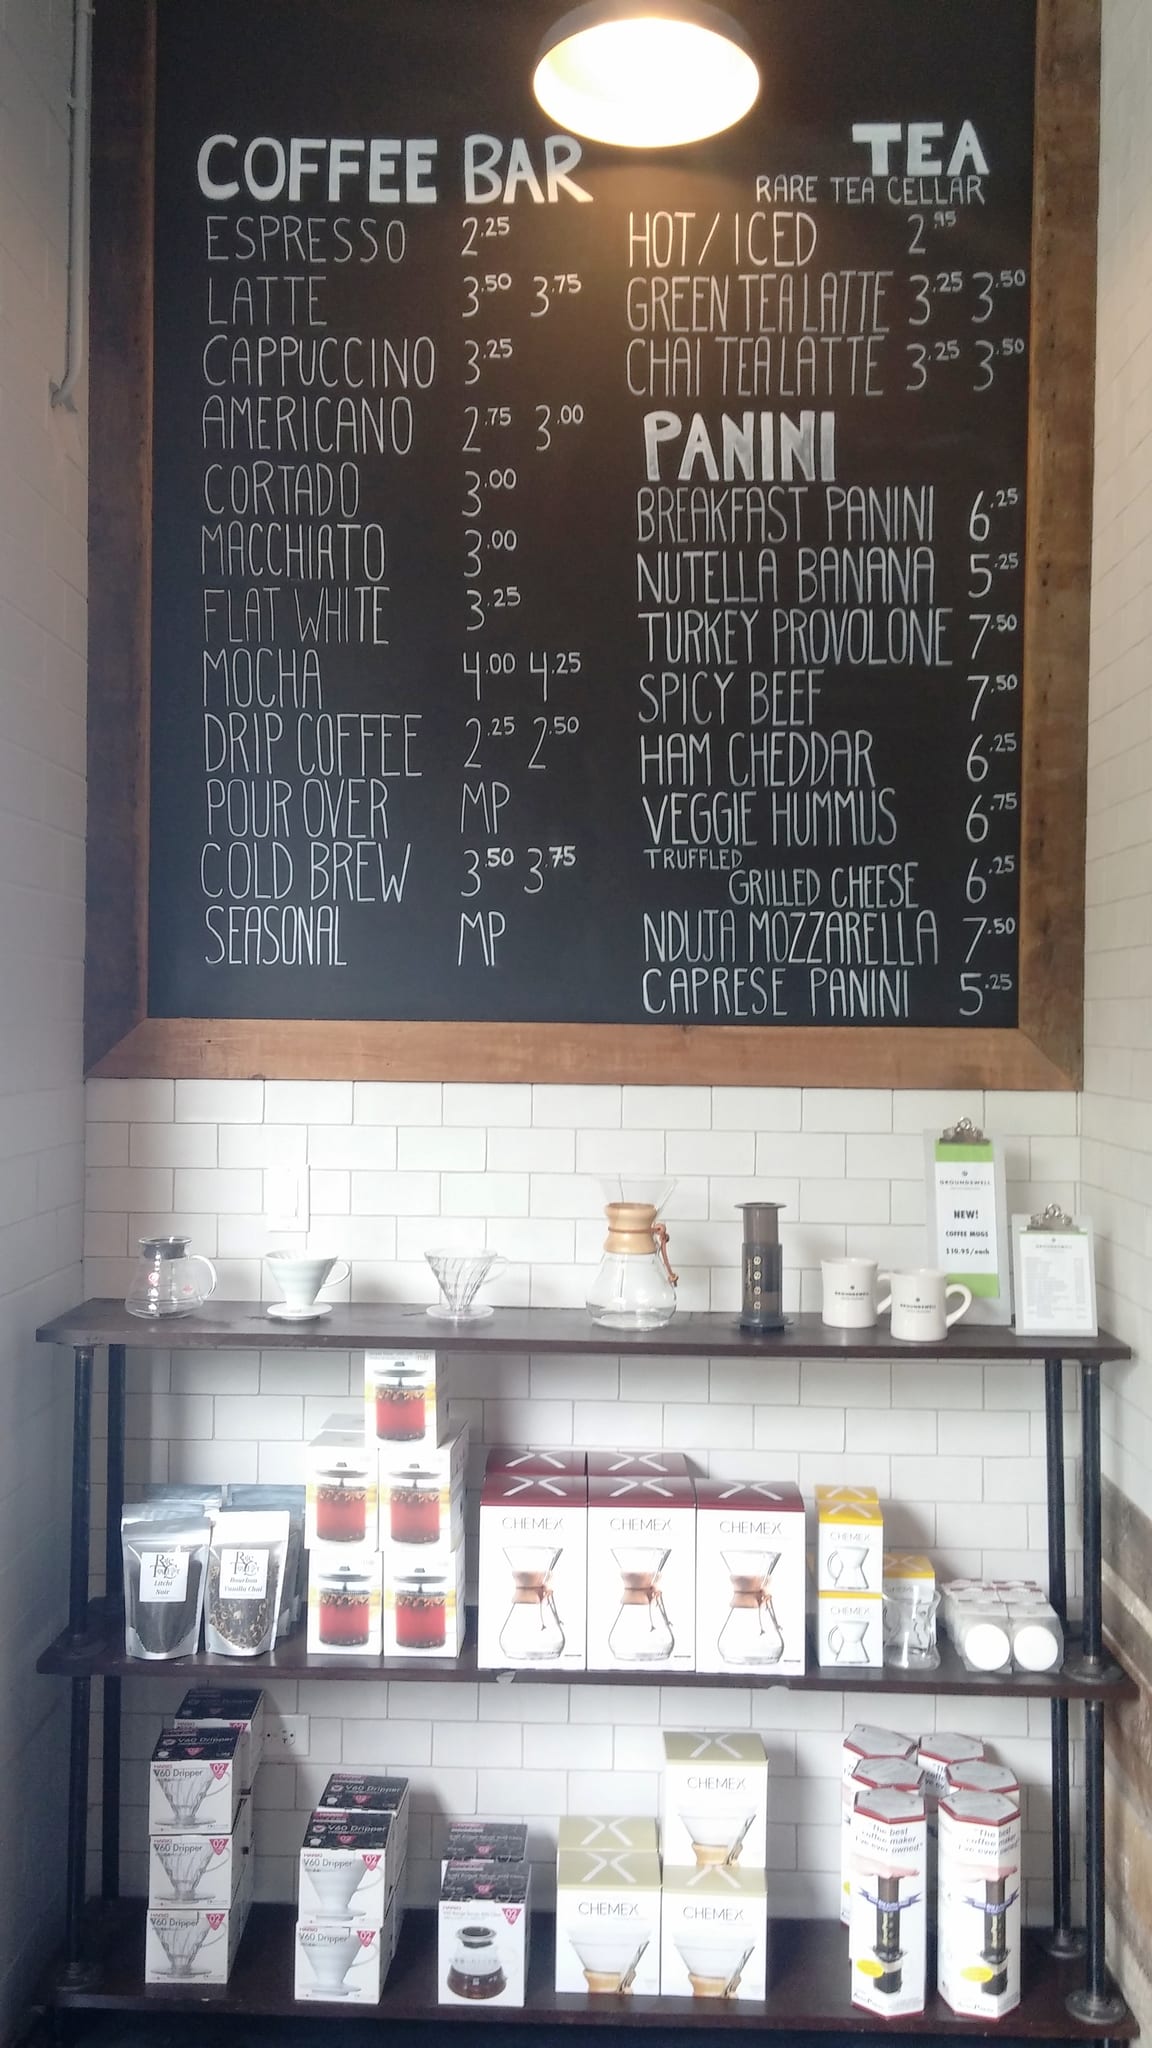 COFFEE BAR
ESPRESSO 2.25
LATTE 3.50 3.75
CAPPUCCINO 3.25
AMERICANO 2.75 3.00
CORTADO 3.00
MACCHIATO 3.00
FLAT WHITE 3.25
MOCHA 4.00 4.25
DRIP COFFEE 2.25 2.50
POUR OVER MP
COLD BREW 3.50 3.75
SEASONAL MP
TEA
RARE TEA CELLAR
HOT/ICED 2.95
GREEN TEA LATTE 3.25 3.50
CHAI TEA LATTE 3.25 3.50
PANINI
BREAKFAST PANINI 6.25
NUTELLA BANANA 5.25
TURKEY PROVOLONE 7.50
SPICY BEEF 7.50
HAM CHEDDAR 6.25
VEGGIE HUMMUS 6.75
TRUFFLED
GRILLED CHEESE 6.25
NDUJA MOZZARELLA 7.50
CAPRESE PANINI 5.25
GROUNDSWELL
NEW!
COFFEE MUGS
$10.95/each
GROUNDSWELL
GROUNDSWELL
GROUNDSWELL
Litchi
Noir
Bourbon
Vanilla Chai
CHEMEX
CHEMEX
CHEMEX
CHEMEX
CHEMEX
V60 Dripper
HARIO
V60 Dripper 02
V60 Dripper 02
V60 Dripper 02
V60 Dripper
V60 Dripper
HARIO
V60 Dripper 02
HARIO
V60 Dripper 02
HARIO
02
CHEMEX
CHEMEX
CHEMEX
"The best
coffee maker
I've ever owned."
"The best
coffee maker
I've ever owned."
AeroPress
AeroPress